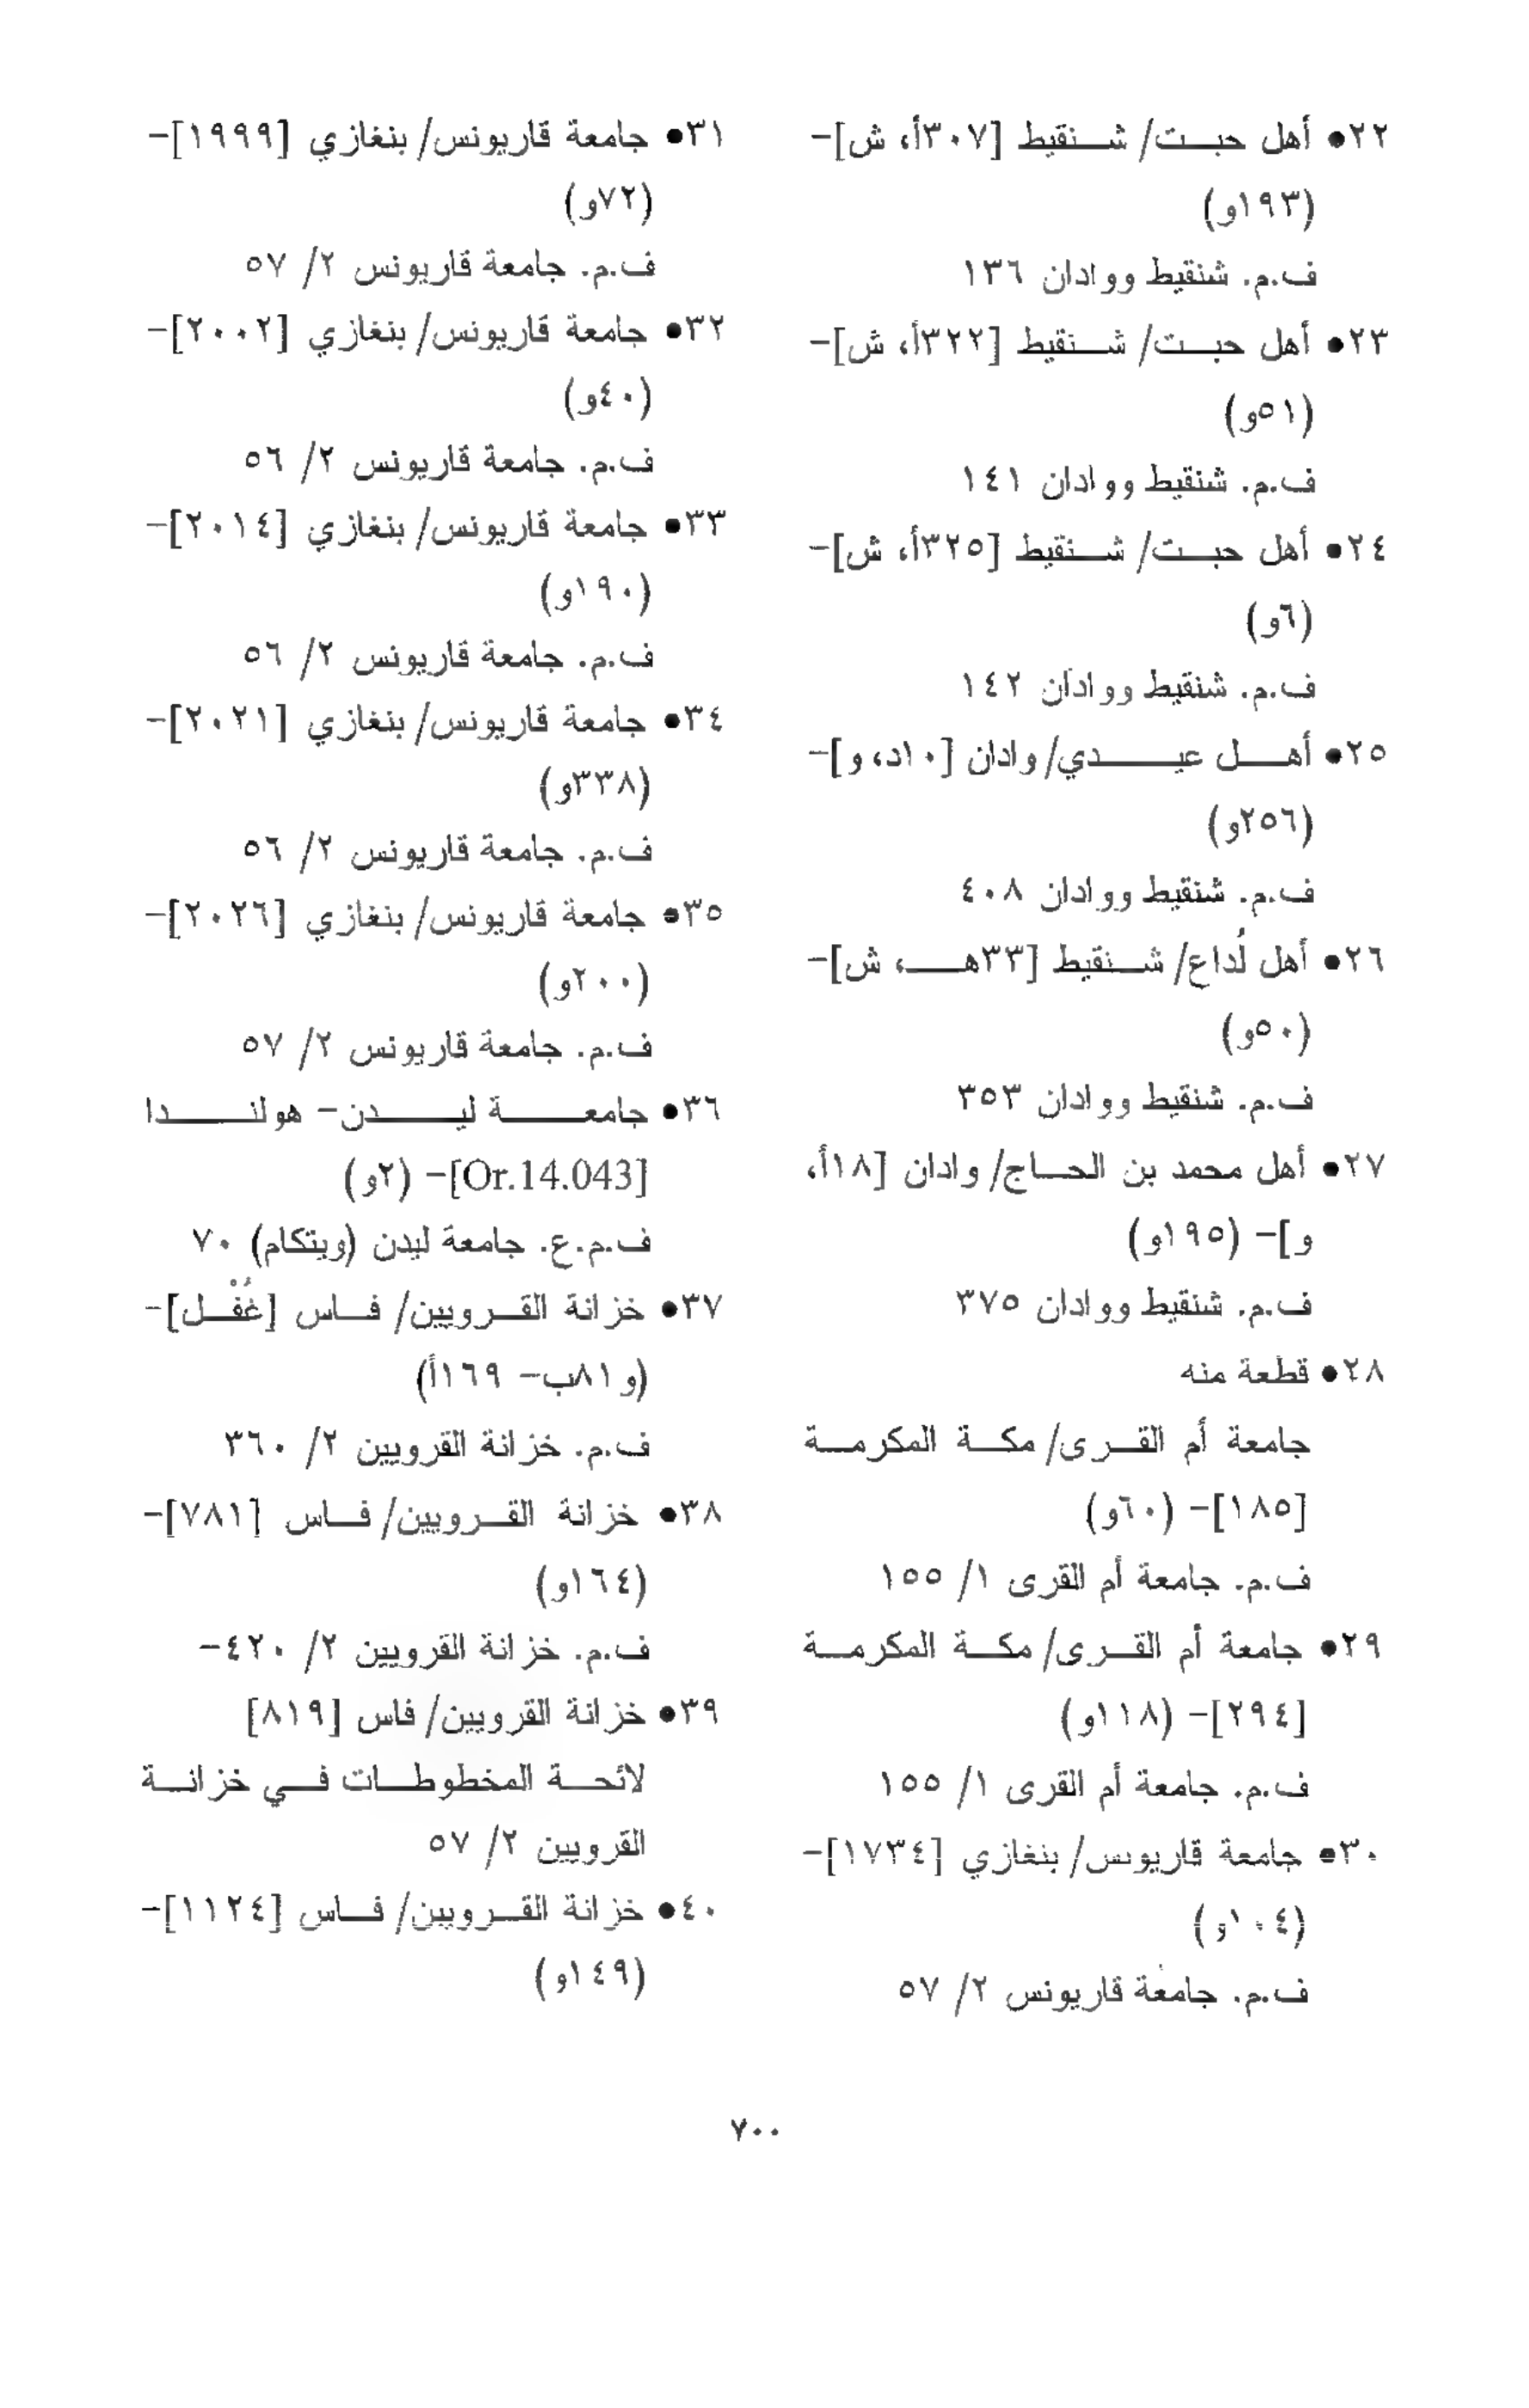 ٢٢● أهل حبت/ شنقيط [٣٠٧أ، ش]-
(١٩٣و)
ف.م. شنقيط ووادان ١٣٦
٢٣● أهل حبت/ شنقيط [٣٢٢أ، ش]-
(٥١و)
ف.م. شنقيط ووادان ١٤١
٢٤● أهل حبت/ شنقيط [٣٢٥أ، ش]-
(٦و)
ف.م. شنقيط ووادان ١٤٢
٢٥● أهل عيدي/ وادان [١٠د، و]-
(٢٥٦و)
ف.م. شنقيط ووادان ٤٠٨
٢٦● أهل لُداع/ شنقيط [٣٣هـ، ش]-
(٥٠و)
ف.م. شنقيط ووادان ٣٥٣
٢٧● أهل محمد بن الحاج/ وادان [١٨أ،
و]- (١٩٥و)
ف.م. شنقيط ووادان ٣٧٥
٢٨● قطعة منه
جامعة أم القرى/ مكة المكرمة
[١٨٥]- (٦٠و)
ف.م. جامعة أم القرى ١/ ١٥٥
٢٩● جامعة أم القرى/ مكة المكرمة
[٢٩٤]- (١١٨و)
ف.م. جامعة أم القرى ١/ ١٥٥
٣٠● جامعة قاريونس/ بنغازي [١٧٣٤]-
(١٠٤و)
ف.م. جامعة قاريونس ٢/ ٥٧
٣١● جامعة قاريونس/ بنغازي [١٩٩٩]-
(٧٢و)
ف.م. جامعة قاريونس ٢/ ٥٧
٣٢● جامعة قاريونس/ بنغازي [٢٠٠٢]-
(٤٠و)
ف.م. جامعة قاريونس ٢/ ٥٦
٣٣● جامعة قاريونس/ بنغازي [٢٠١٤]-
(١٩٠و)
ف.م. جامعة قاريونس ٢/ ٥٦
٣٤● جامعة قاريونس/ بنغازي [٢٠٢١]-
(٣٣٨و)
ف.م. جامعة قاريونس ٢/ ٥٦
٣٥● جامعة قاريونس/ بنغازي [٢٠٢٦]-
(٢٠٠و)
ف.م. جامعة قاريونس ٢/ ٥٧
٣٦● جامعة ليدن- هولندا
[Or.14.043]- (٢و)
ف.م.ع. جامعة ليدن (ويتكام) ٧٠
٣٧● خزانة القرويين/ فاس [غُفْل]-
(و٨١ب- ١٦٩أ)
ف.م. خزانة القرويين ٢/ ٣٦٠
٣٨● خزانة القرويين/ فاس [٧٨١]-
(١٦٤و)
ف.م. خزانة القرويين ٢/ ٤٢٠-
٣٩● خزانة القرويين/ فاس [٨١٩]
لائحة المخطوطات في خزانة
القرويين ٢/ ٥٧
٤٠● خزانة القرويين/ فاس [١١٢٤]-
(١٤٩و)
٧٠٠